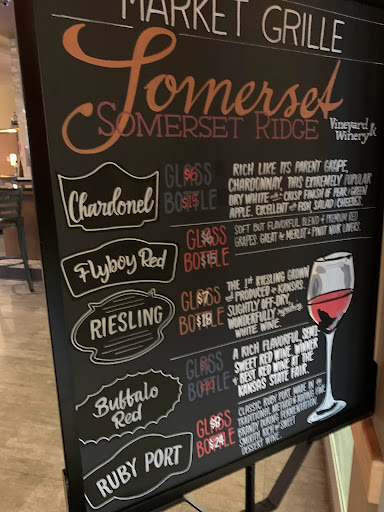 MARKET GRILLE
Somerset
SOMERSET RIDGE Vineyard &
Winery
Chardonel
GLASS
BOTTLE $15
RICH LIKE ITS PARENT GRAPE,
CHARDONNAY, THIS EXTREMELY POPULAR
DRY WHITE CRISP FINISH PEAR GREEN
APPLE. EXCELLENT FISH, SALAD CHEESES.
Flyboy Red
GLASS
BOTTLE $15
SOFT BUT FLAVORFUL BLEND PREMIUM RED
GRAPES. GREAT MERLOT & PINOT NOIR LOVERS.
RIESLING
GLASS $7
BOTTLE $18
THE 1ST RIESLING GROWN
AND PRODUCED IN KANSAS.
SLIGHTLY OFF-DRY,
WONDERFULLY
WHITE WINE.
Buffalo
Red
GLASS
BOTTLE $20
A RICH FLAVORFUL SEMI-
SWEET RED WINE. WINNER
BEST RED WINE AT THE
KANSAS STATE FAIR.
RUBY PORT
GLASS $8
BOTTLE $24
CLASSIC, RUBY PORT MADE IN THE
TRADITIONAL METHOD ADDING FINE
BRANDY DURING FERMENTATION.
SMOOTH, RICH SWEET
DESSERT WINE.